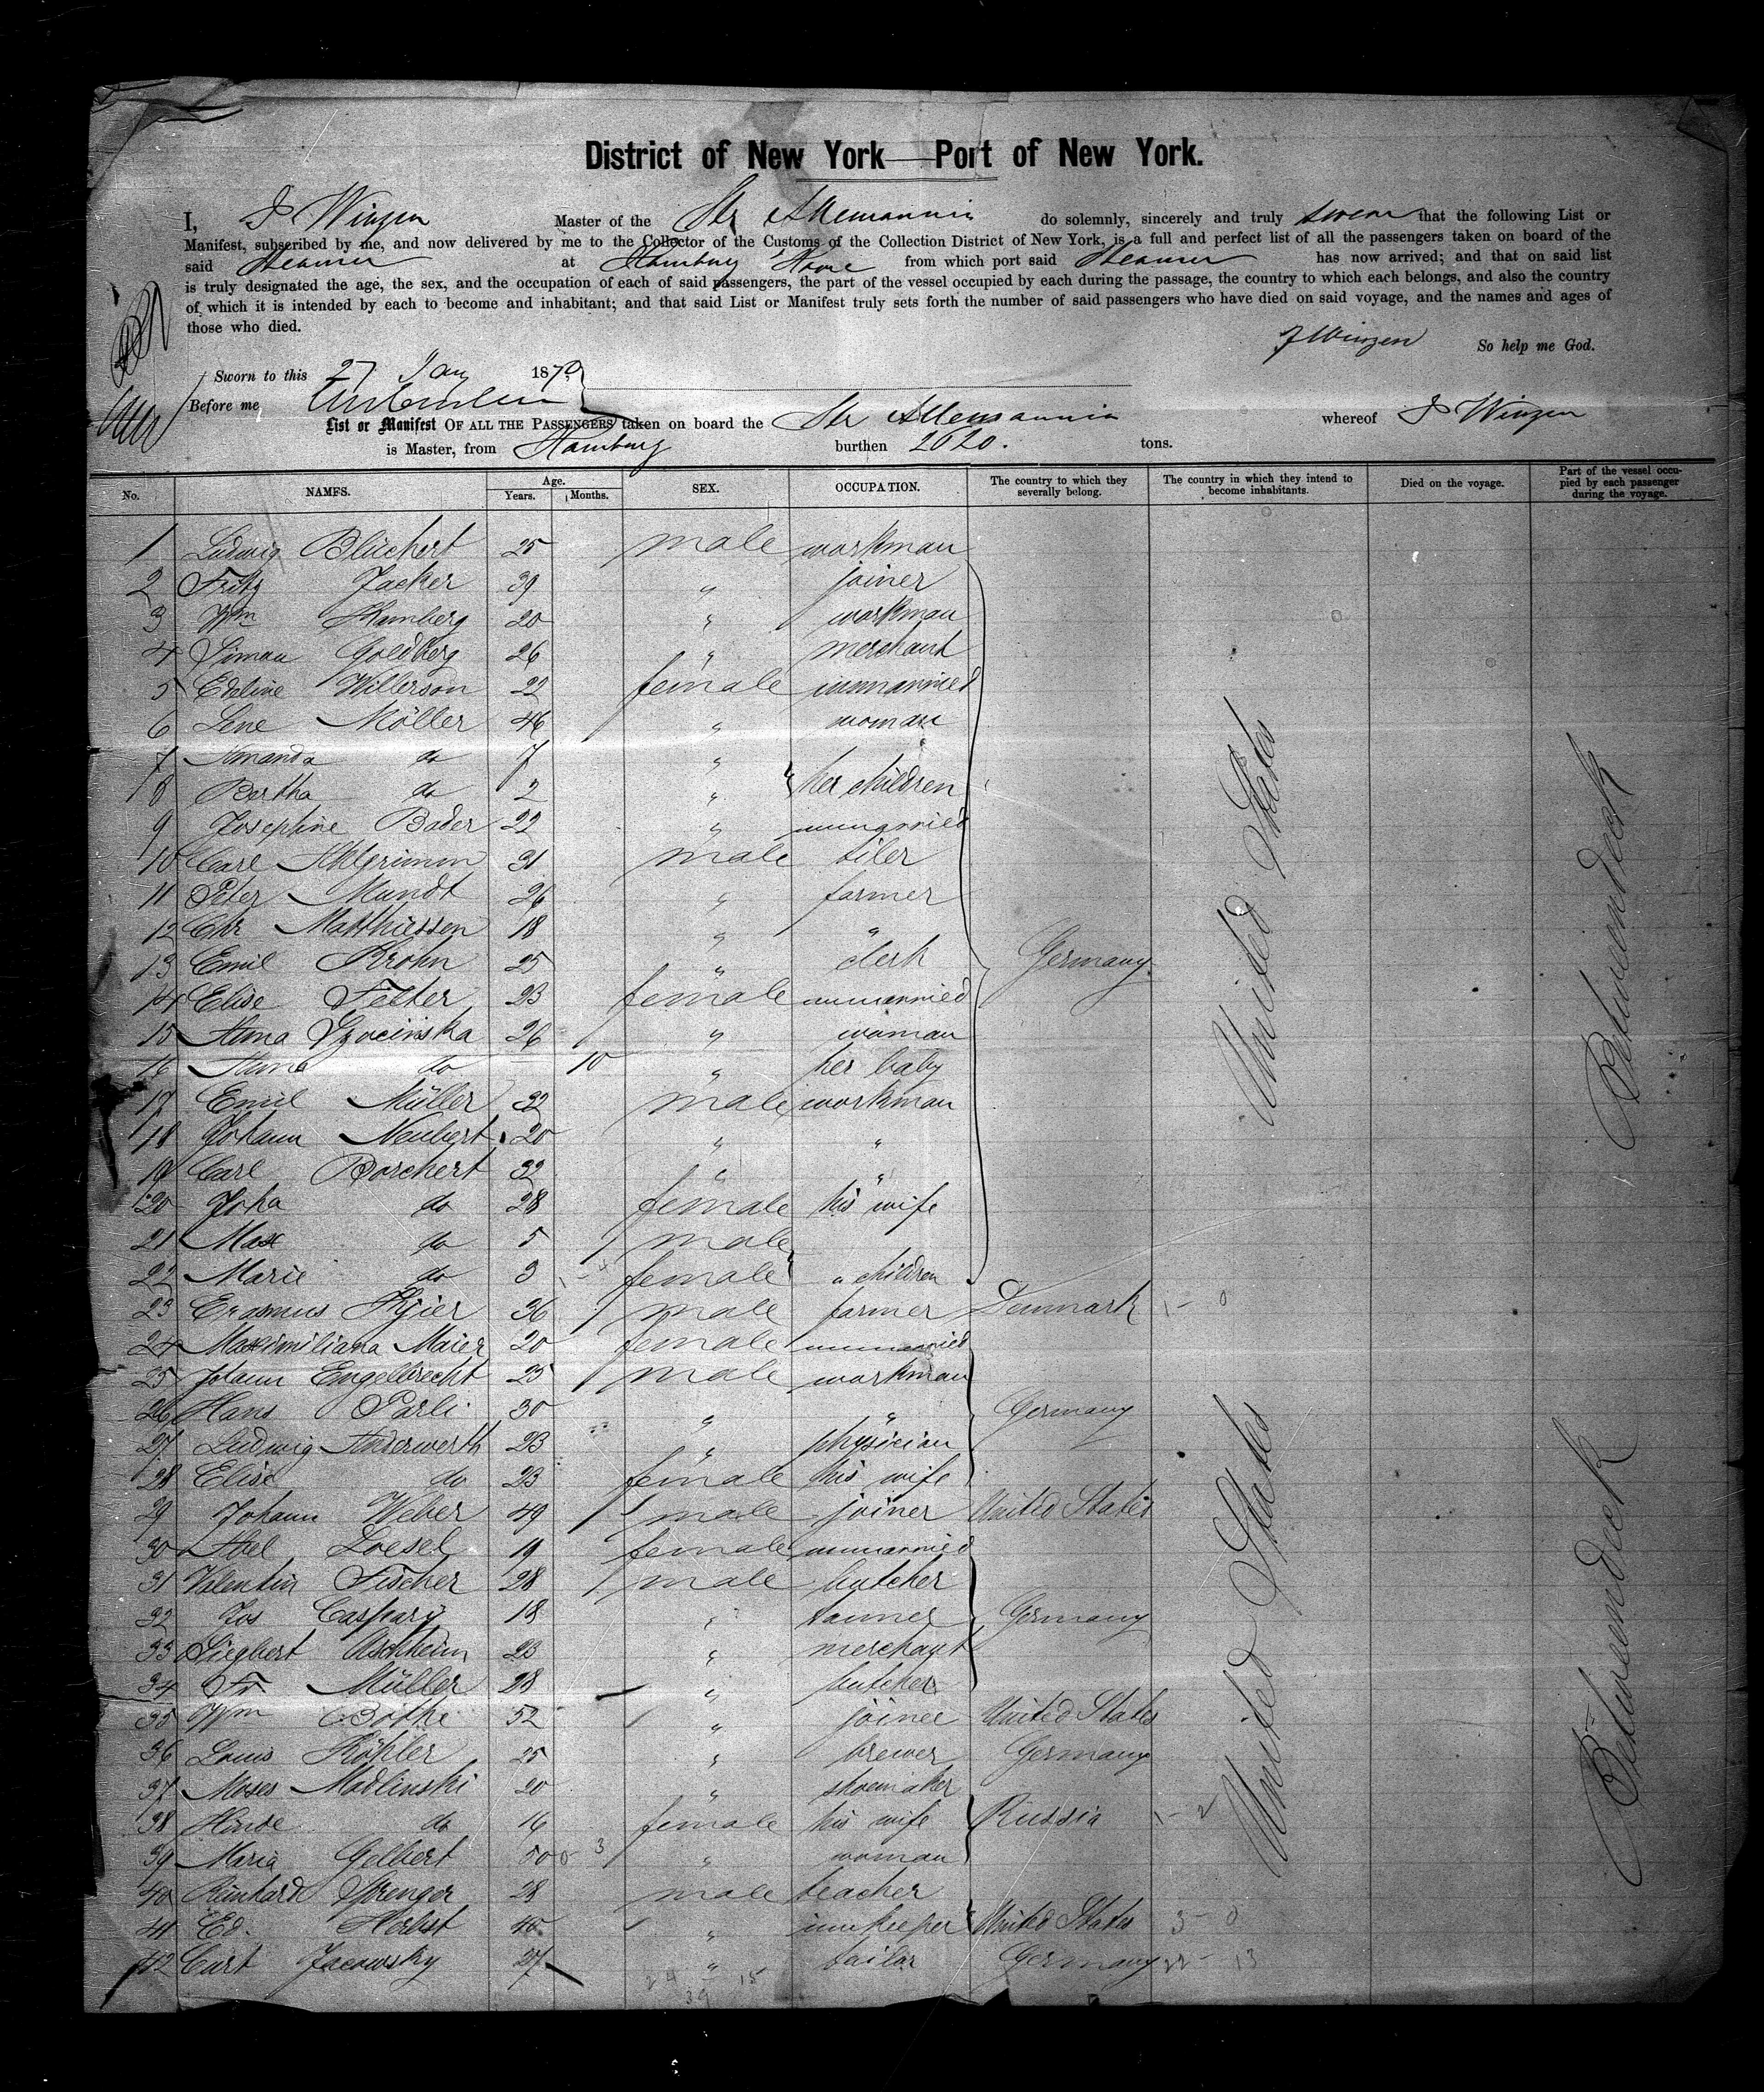 District of New York—Port of New York.
I, J Winzen Master of the Str Allemannia do solemnly, sincerely and truly swear that the following List or
Manifest, subscribed by me, and now delivered by me to the Collector of the Customs of the Collection District of New York, is a full and perfect list of all the passengers taken on board of the
said Steamer at Hamburg & Havre from which port said Steamer has now arrived; and that on said list
is truly designated the age, the sex, and the occupation of each of said passengers, the part of the vessel occupied by each during the passage, the country to which each belongs, and also the country
of which it is intended by each to become and inhabitant; and that said List or Manifest truly sets forth the number of said passengers who have died on said voyage, and the names and ages of
those who died.
J Winzen So help me God.
Sworn to this 27 Jan 1870
Before me
List or Manifest OF ALL THE PASSENGERS taken on board the Str Allemannia whereof J Winzen
is Master, from Hamburg burthen 2620. tons.
No. NAMES. Age. Years. Months. SEX. OCCUPATION. The country to which they severally belong. The country in which they intend to become inhabitants. Died on the voyage. Part of the vessel occupied by each passenger during the voyage.
1 Ludwig Blüchert 25 male workman
2 Fritz Jacker 39 " joiner
3 Wm Hamberg 20 " workman
4 Simon Goldberg 26 " merchant
5 Edeline Willerson 22 female unmarried
6 Lene Möller 46 " woman
7 Amanda do 7 "
8 Bertha do 2 " her children
9 Josephine Bader 22 " unmarried
10 Carl Ahlgrimm 31 male tiler
11 Peter Mundt 26 " farmer
12 Chr Matthiessen 18 " "
13 Emil Krohn 25 " clerk Germany United States Betweendeck
14 Elise Fetter 23 female unmarried
15 Anna 26 " woman
16 Anna do 10 " her baby
17 Emil Müller 32 male workman
18 Johann Neubert 20 " "
19 Carl Borchert 32 " "
20 Joha do 28 female his wife
21 Max do 5 male
22 Marie do 3 female " children
23 Erasmus Kjier 36 male farmer Denmark 1 - 0
24 Maximiliana Maier 20 female unmarried
25 Johann Engelbrecht 25 male workman
26 Hans Parli 30 " " Germany
27 Ludwig Anderwerth 23 " physician
28 Elise do 23 female his wife
29 Johann Weber 49 male joiner United States
30 Abel Loesel 19 female unmarried
31 Valentin Fischer 28 male butcher
32 Jos Caspary 18 " tanner Germany
33 Siegbert Aschheim 23 " merchant
34 Fr Müller 28 " butcher
35 Wm Böthe 52 " joiner United States United States Betweendeck
36 Louis Köhler 25 " brewer Germany
37 Moses Madlinski 20 " shoemaker
38 Hinde do 16 female his wife Russia 1 - 2
39 Maria Gelbert 50 " woman
40 Reinhard Sprenger 28 male teacher
41 Ed. Herbst 45 " innkeeper United States 3 - 0
42 Curt Jacowsky 27 " tailor Germany 22 - 13
24 - 15
39